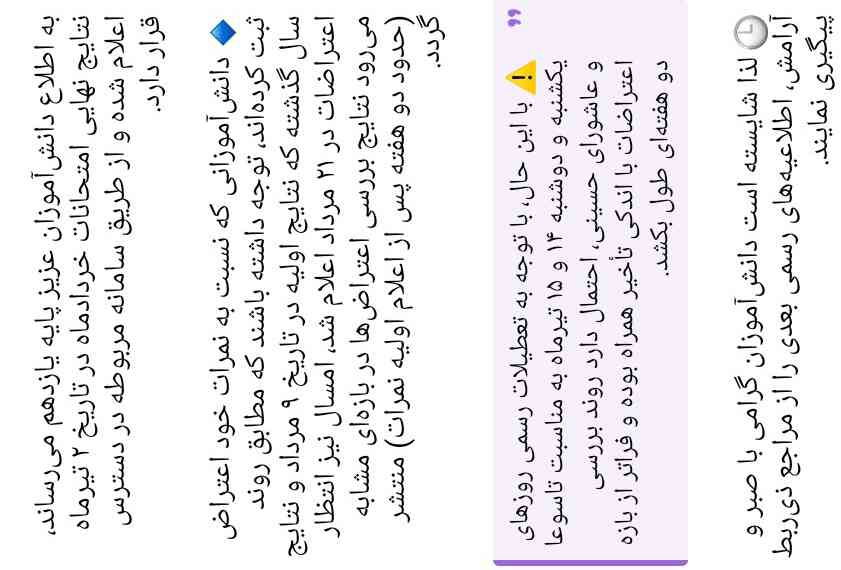 به اطلاع دانش‌آموزان عزیز پایه یازدهم می‌رساند،
نتایج نهایی امتحانات خردادماه در تاریخ ۲ تیرماه
اعلام شده و از طریق سامانه مربوطه در دسترس
قرار دارد.
🔷 دانش‌آموزانی که نسبت به نمرات خود اعتراض
ثبت کرده‌اند، توجه داشته باشند که مطابق روند
سال گذشته که نتایج اولیه در تاریخ ۹ مرداد و نتایج
اعتراضات در ۲۱ مرداد اعلام شد، امسال نیز انتظار
می‌رود نتایج بررسی اعتراض‌ها در بازه‌ای مشابه
(حدود دو هفته پس از اعلام اولیه نمرات) منتشر
گردد.
⚠️ با این حال، با توجه به تعطیلات رسمی روزهای
یکشنبه و دوشنبه ۱۴ و ۱۵ تیرماه به مناسبت تاسوعا
و عاشورای حسینی، احتمال دارد روند بررسی
اعتراضات با اندکی تأخیر همراه بوده و فراتر از بازه
دو هفته‌ای طول بکشد.
🕒 لذا شایسته است دانش‌آموزان گرامی با صبر و
آرامش، اطلاعیه‌های رسمی بعدی را از مراجع ذی‌ربط
پیگیری نمایند.